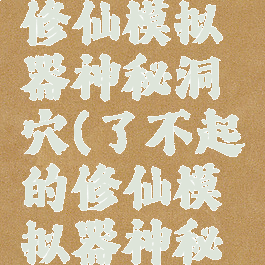 修仙模拟
器神秘洞
穴(了不起
的修仙模
拟器神秘